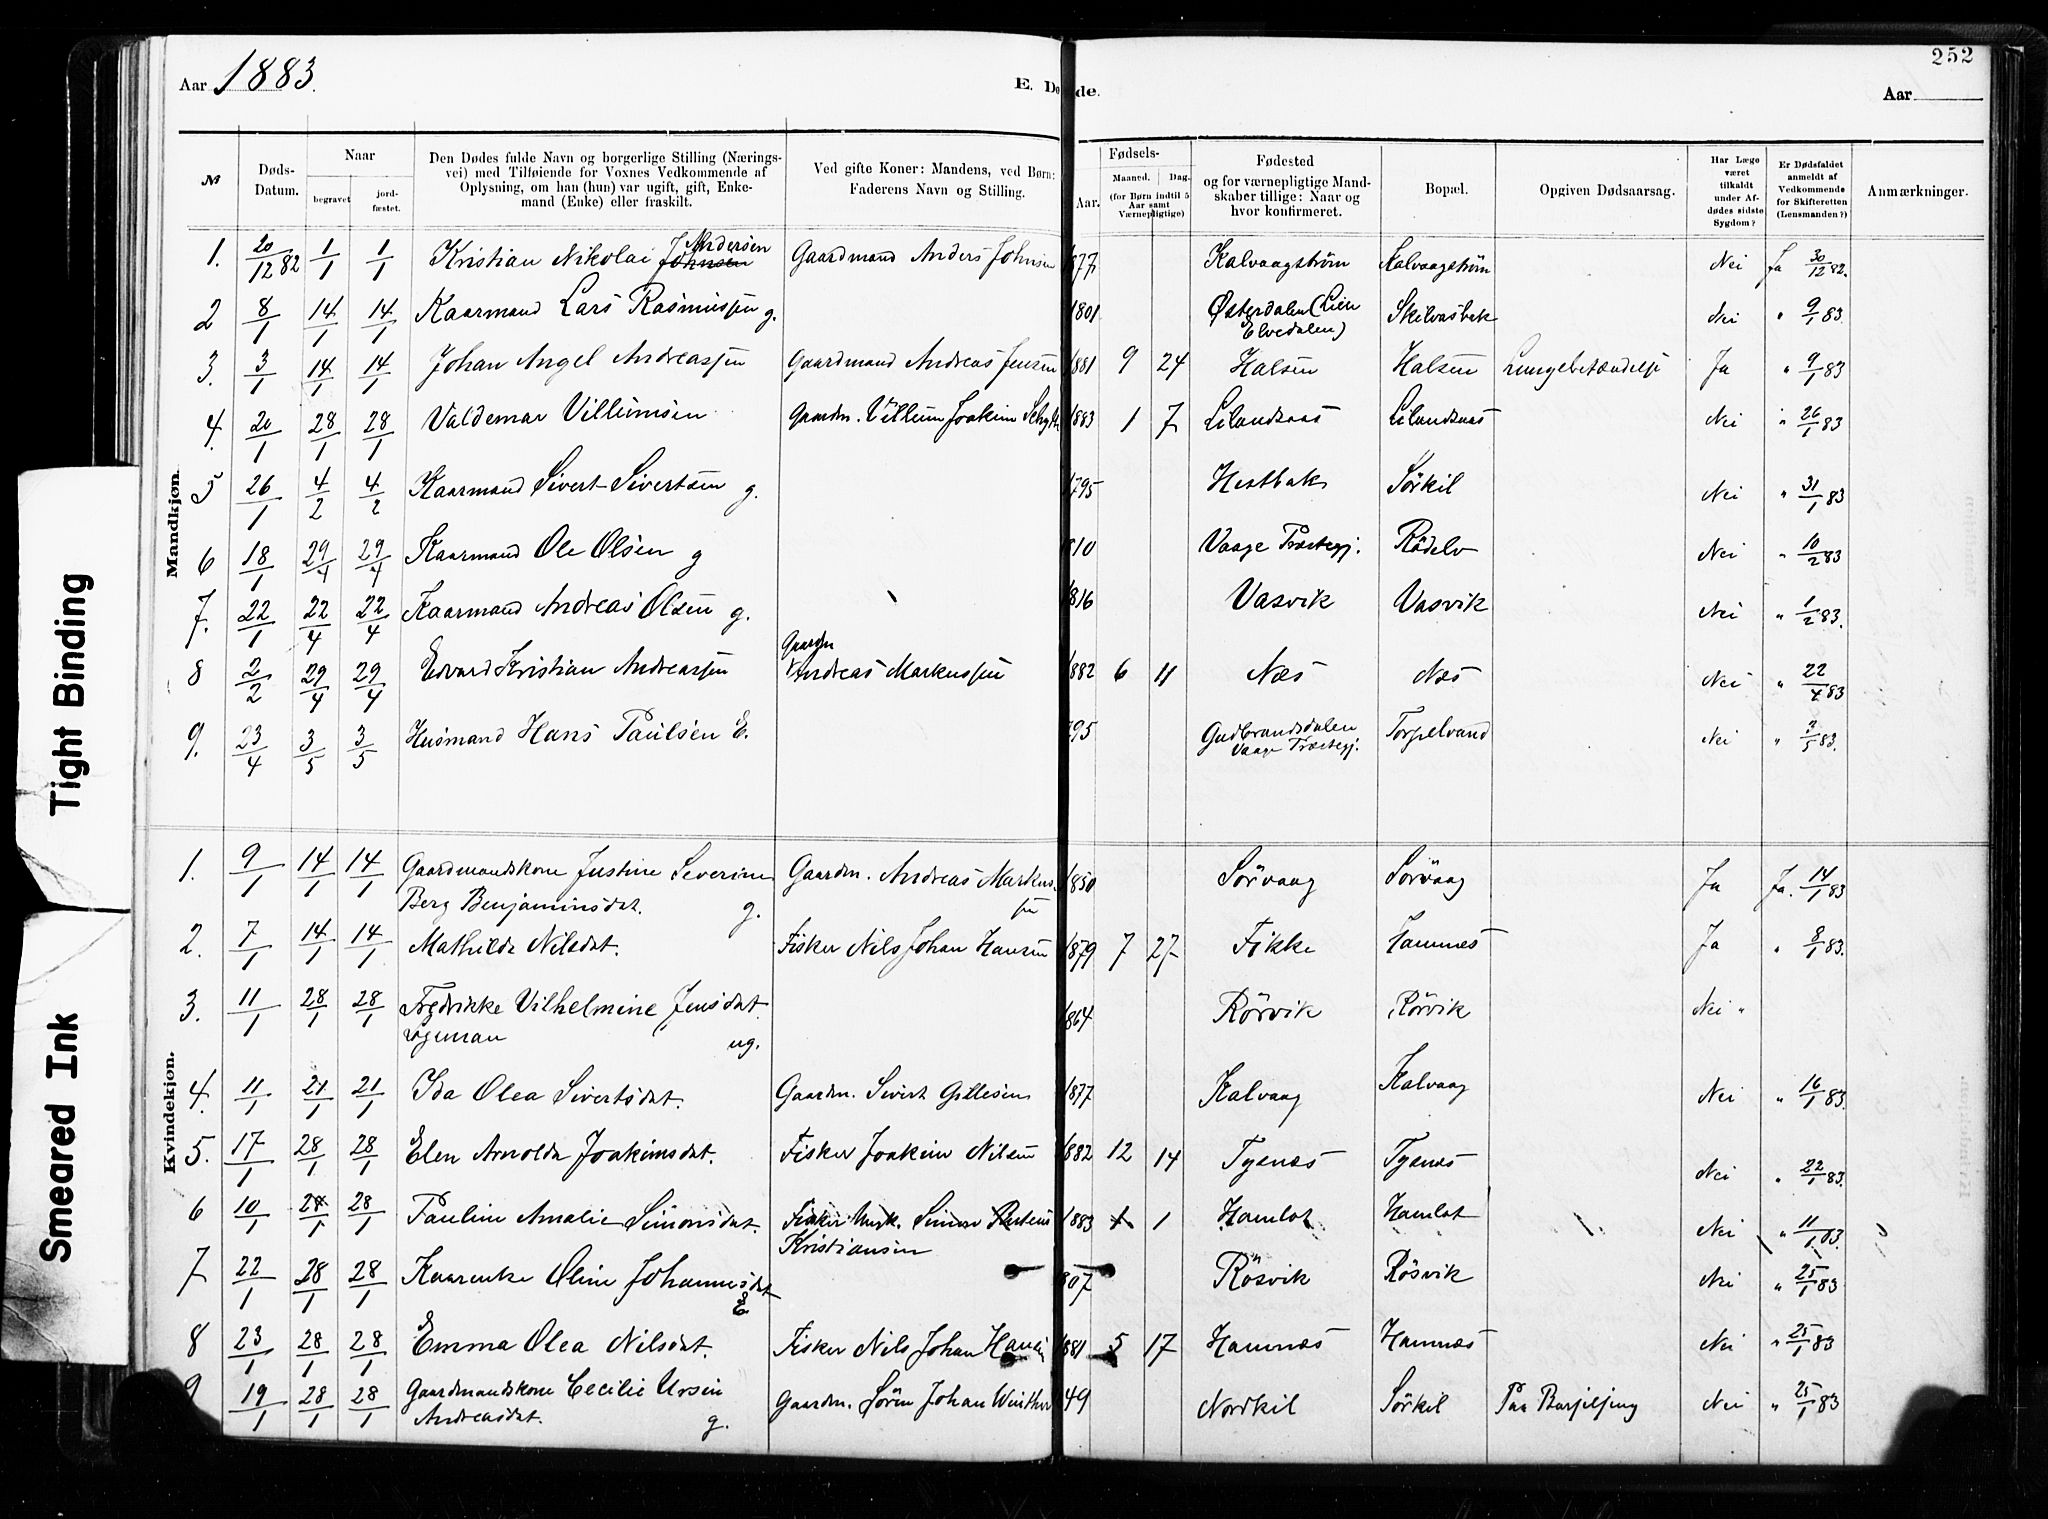 252
Aar 1883.
E. Dø de.
Aar
Nr
Døds-Datum.
Naar
begravet
jord-fæstet.
Den Dødes fulde Navn og borgerlige Stilling (Nærings-
vei) med Tilføiende for Voxnes Vedkommende af
Oplysning, om han (hun) var ugift, gift, Enke-
mand (Enke) eller fraskilt.
Ved gifte Koner: Mandens, ved Børn:
Faderens Navn og Stilling.
Fødsels-
Aar.
Maaned.
Dag.
(for Børn indtil 5
Aar samt
Værnepligtige)
Fødested
og for værnepligtige Mand-
skaber tillige: Naar og
hvor konfirmeret.
Bopæl.
Opgiven Dødsaarsag.
Har Læge
været
tilkaldt
under Af-
dødes sidste
Sygdom?
Er Dødsfaldet
anmeldt af
Vedkommende
for Skifteretten
(Lensmanden?)
Anmærkninger.
Mandkjøn.
1. 20/12 82 1/1 1/1 Kristian Nikolai Johnsen Andersen Gaardmand Anders Johnsen 1877 Kalvaagstrøm Kalvaagstrøm Nei Ja 30/12 82.
2 8/1 14/1 14/1 Kaarmand Lars Rasmussen g. 1801 Østerdalen (Lien Skilvasbak Nei " 9/1 83.
Elvedalen)
3. 3/1 14/1 14/1 Johan Angel Andreassen Gaardmand Andreas Jensen 1881 9 24 Halsen Halsen Lungebetændelse Ja " 9/1 83
4. 20/1 28/1 28/1 Valdemar Villumsen Gaardm. Villum Joakim 1883 1 7 Lilandsaas Lilandsaas Nei " 26/1 83
5 26/1 4/2 4/2 Kaarmand Sivert Sivertsen g. 1795 Hestbak Sörkil Nei " 31/1 83
6 18/1 29/4 29/4 Kaarmand Ole Olsen g 810 Vaage Præstegj. Rödelv Nei " 10/2 83
7. 22/1 22/4 22/4 Kaarmand Andreas Olsen g. 1816 Vasvik Vasvik Nei " 1/2 83.
Gaardm
8 2/2 29/4 29/4 Edvard Kristian Andreassen Andreas Markussen 1882 6 11 Næs Næs Nei " 22/4 83
9. 23/4 3/5 3/5 Husmand Hans Paulsen E. 795 Gudbrandsdalen Torpelvand Nei " 3/5 83.
Vaage Præstegj.
Kvindekjøn.
1. 9/1 14/1 14/1 Gaardmandskone Justine Severine Gaardm. Andreas Markus- 1850 Sörvaag Sörvaag Ja Ja. 14/1 83
Berg Benjaminsdat. g. sen
2. 7/1 14/1 14/1 Mathilde Nilsdat. Fisker Nils Johan Hansen 1879 7 27 Fikke Hamnes Ja " 8/1 83.
3. 11/1 28/1 28/1 Fredrikke Vilhelmine Jensdat. 1864 Rörvik Rörvik Nei "
Logeman ug.
4. 11/1 21/1 21/1 Ida Olea Sivertsdat. Gaardm. Sivert Gillesen 1877 Kalvaag Kalvaag Nei " 16/1 83.
5. 17/1 28/1 28/1 Elen Arnolda Joakimsdat. Fisker Joakim Nilsen 1882 12 14 Tysnæs Tysnæs Nei " 22/1 83.
6 10/1 28/1 28/1 Pauline Amalie Simonsdat. Fisker Simon 1883 1 1 Hamlot Hamlot Nei " 11/1 83.
Kristiansen
7 22/1 28/1 28/1 Kaarenke Oline Johannesdat 807 Rösvik Rösvik Nei " 25/1 83
E
8 23/1 28/1 28/1 Emma Olea Nilsdat. Fisker Nils Johan Hansen 1881 5 17 Hamnæs Hamnæs Nei " 25/1 83
9 19/1 28/1 28/1 Gaardmandskone Cecilie Ursin Gaardm. Sörin Johan Winther 49 Nordkil Sörkil Paa Barselseng Nei " 25/1 83
Andreasdat. g.
Tight Binding
Smeared Ink